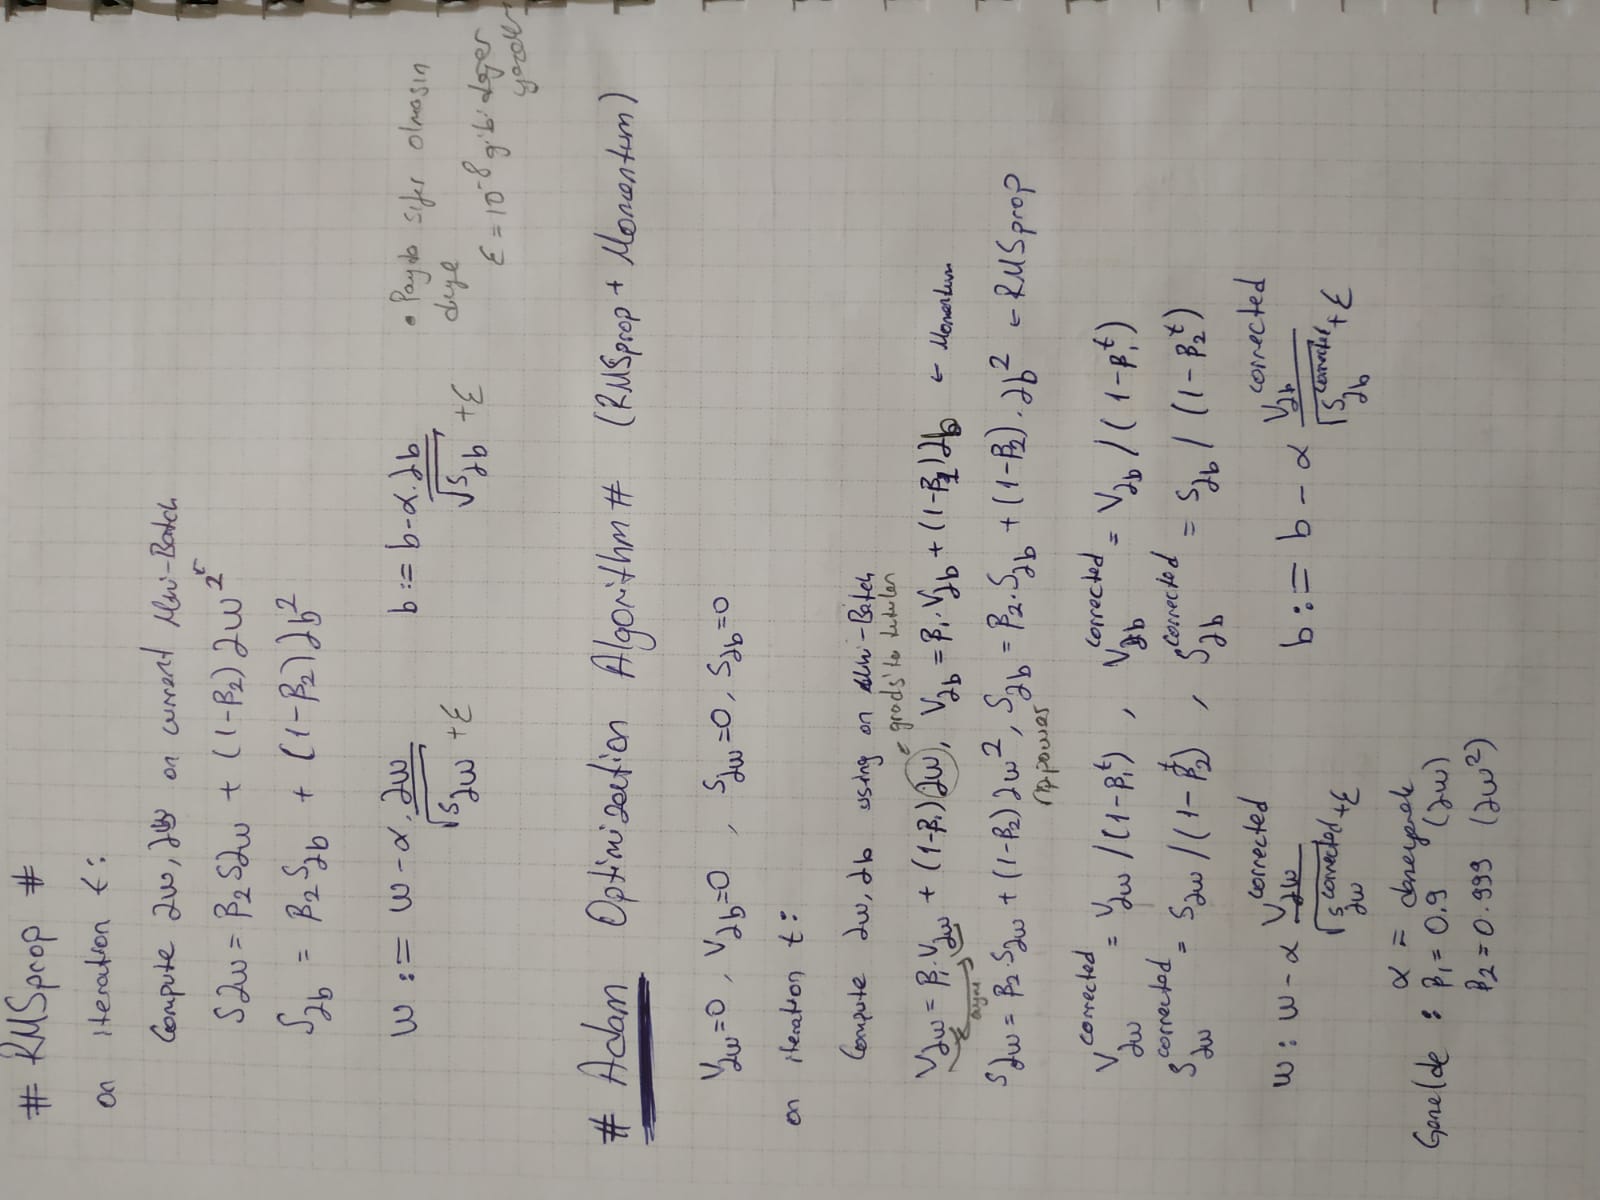 # RMSprop #
on iteration t:
Compute ∂w, ∂b on current Mini-Batch
S∂w = β₂ S∂w + (1-β₂) ∂w²
S∂b = β₂ S∂b + (1-β₂) ∂b²
w := w - α . ∂w / √S∂w + ε    b := b - α . ∂b / √S∂b + ε
• Payda sıfır olmasın
diye
ε = 10⁻⁸ gibi değer
# Adam Optimization Algorithm # (RMSprop + Momentum)
V∂w = 0 , V∂b = 0 , S∂w = 0 , S∂b = 0
on iteration t:
Compute ∂w, ∂b using on Mini-Batch
← grads'ta tutulan
V∂w = β₁ . V∂w + (1-β₁) ∂w , V∂b = β₁ . V∂b + (1-β₁) ∂b ← Momentum
aynı
S∂w = β₂ . S∂w + (1-β₂) ∂w² , S∂b = β₂ . S∂b + (1-β₂) . ∂b² ← RMSprop
np.power
V∂w corrected = V∂w / (1-β₁ᵗ) , V∂b corrected = V∂b / (1-β₁ᵗ)
S∂w corrected = S∂w / (1-β₂ᵗ) , S∂b corrected = S∂b / (1-β₂ᵗ)
w : w - α V∂w corrected / √S∂w corrected + ε    b := b - α V∂b corrected / √S∂b corrected + ε
α = deneyerek
Genelde : β₁ = 0.9 (∂w)
β₂ = 0.999 (∂w²)